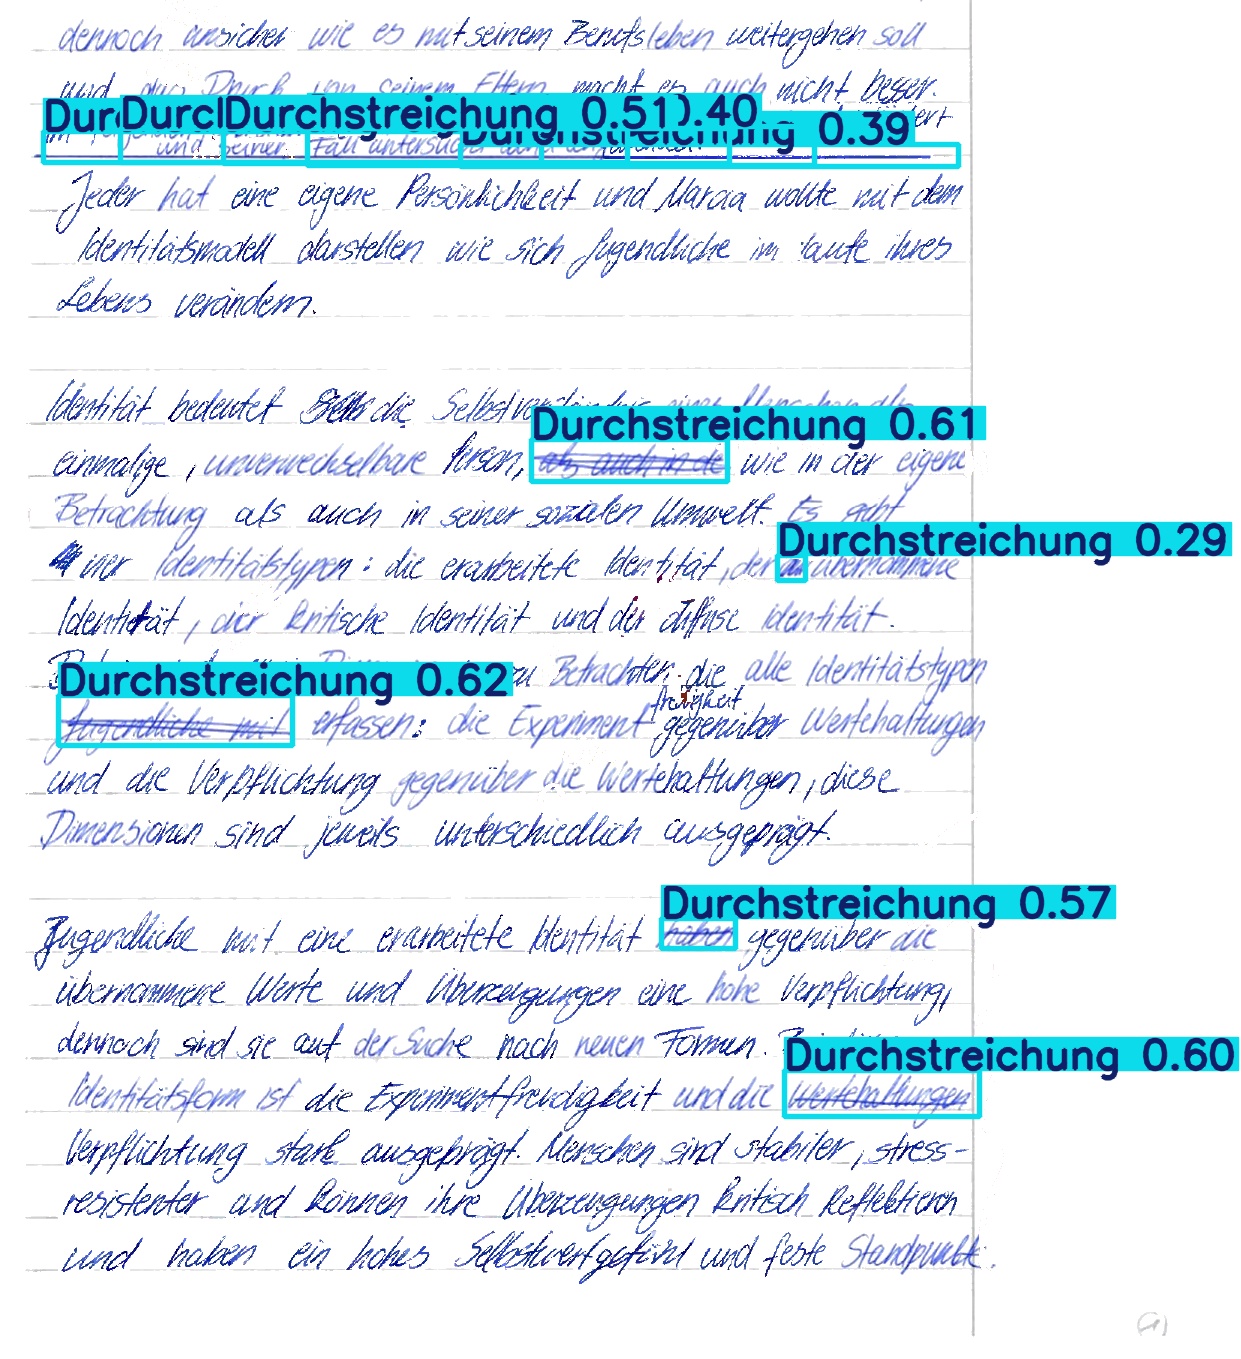 dennoch unsicher wie es mit seinem Berufsleben weitergehen soll
und das Druck von seinem Eltern macht es auch nicht besser.
Durchstreichung 0.51 0.40
Durchstreichung 0.39
und seiner Fall untersucht
Jeder hat eine eigene Persönlichkeit und Marcia wollte mit dem
Identitätsmodell darstellen wie sich Jugendliche im laufe ihres
Lebens verändern.
Identität bedeutet die Selbstverständnis eines Menschen als
Durchstreichung 0.61
einmalige, unverwechselbare Person, als auch in de wie in der eigene
Betrachtung als auch in seiner sozialen Umwelt. Es geht
Durchstreichung 0.29
vier Identitätstypen: die erarbeitete Identität, der übernommene
Identität, der kritische Identität und der diffuse Identität.
zu Betrachten. die alle Identitätstypen
Durchstreichung 0.62
freudigkeit
Jugendliche mit erfassen: die Experiment gegenüber Wertehaltungen
und die Verpflichtung gegenüber die Wertehaltungen, diese
Dimensionen sind jeweils unterschiedlich ausgeprägt.
Durchstreichung 0.57
Jugendliche mit eine erarbeitete Identität haben gegenüber die
übernommene Werte und Überzeugungen eine hohe Verpflichtung,
dennoch sind sie auf der Suche nach neuen Formen.
Durchstreichung 0.60
Identitätsform ist die Experimentfreudigkeit und die Wertehaltungen
Verpflichtung stark ausgeprägt. Menschen sind stabiler, stress-
resistenter und können ihre Überzeugungen kritisch Reflektieren
und haben ein hohes Selbstwertgefühl und feste Standpunkte.